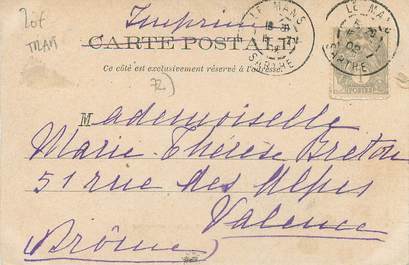 Imprimé
CARTE POSTALE
Ce côté est exclusivement réservé à l'adresse.
LE MANS
SARTHE
LE MANS
SARTHE
72)
Mademoiselle
Marie-Thérèse Breton
51 rue des Alpes
Valence
(Drôme)